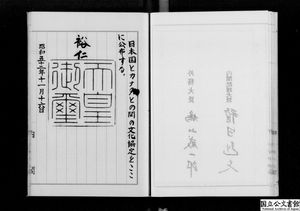 日本国とカナダとの間の文化協定をここ
に公布する。
裕仁
天皇
御璽
昭和五十一年十一月十六日
内閣総理大臣
外務大臣
国立公文書館
National Archives of Japan